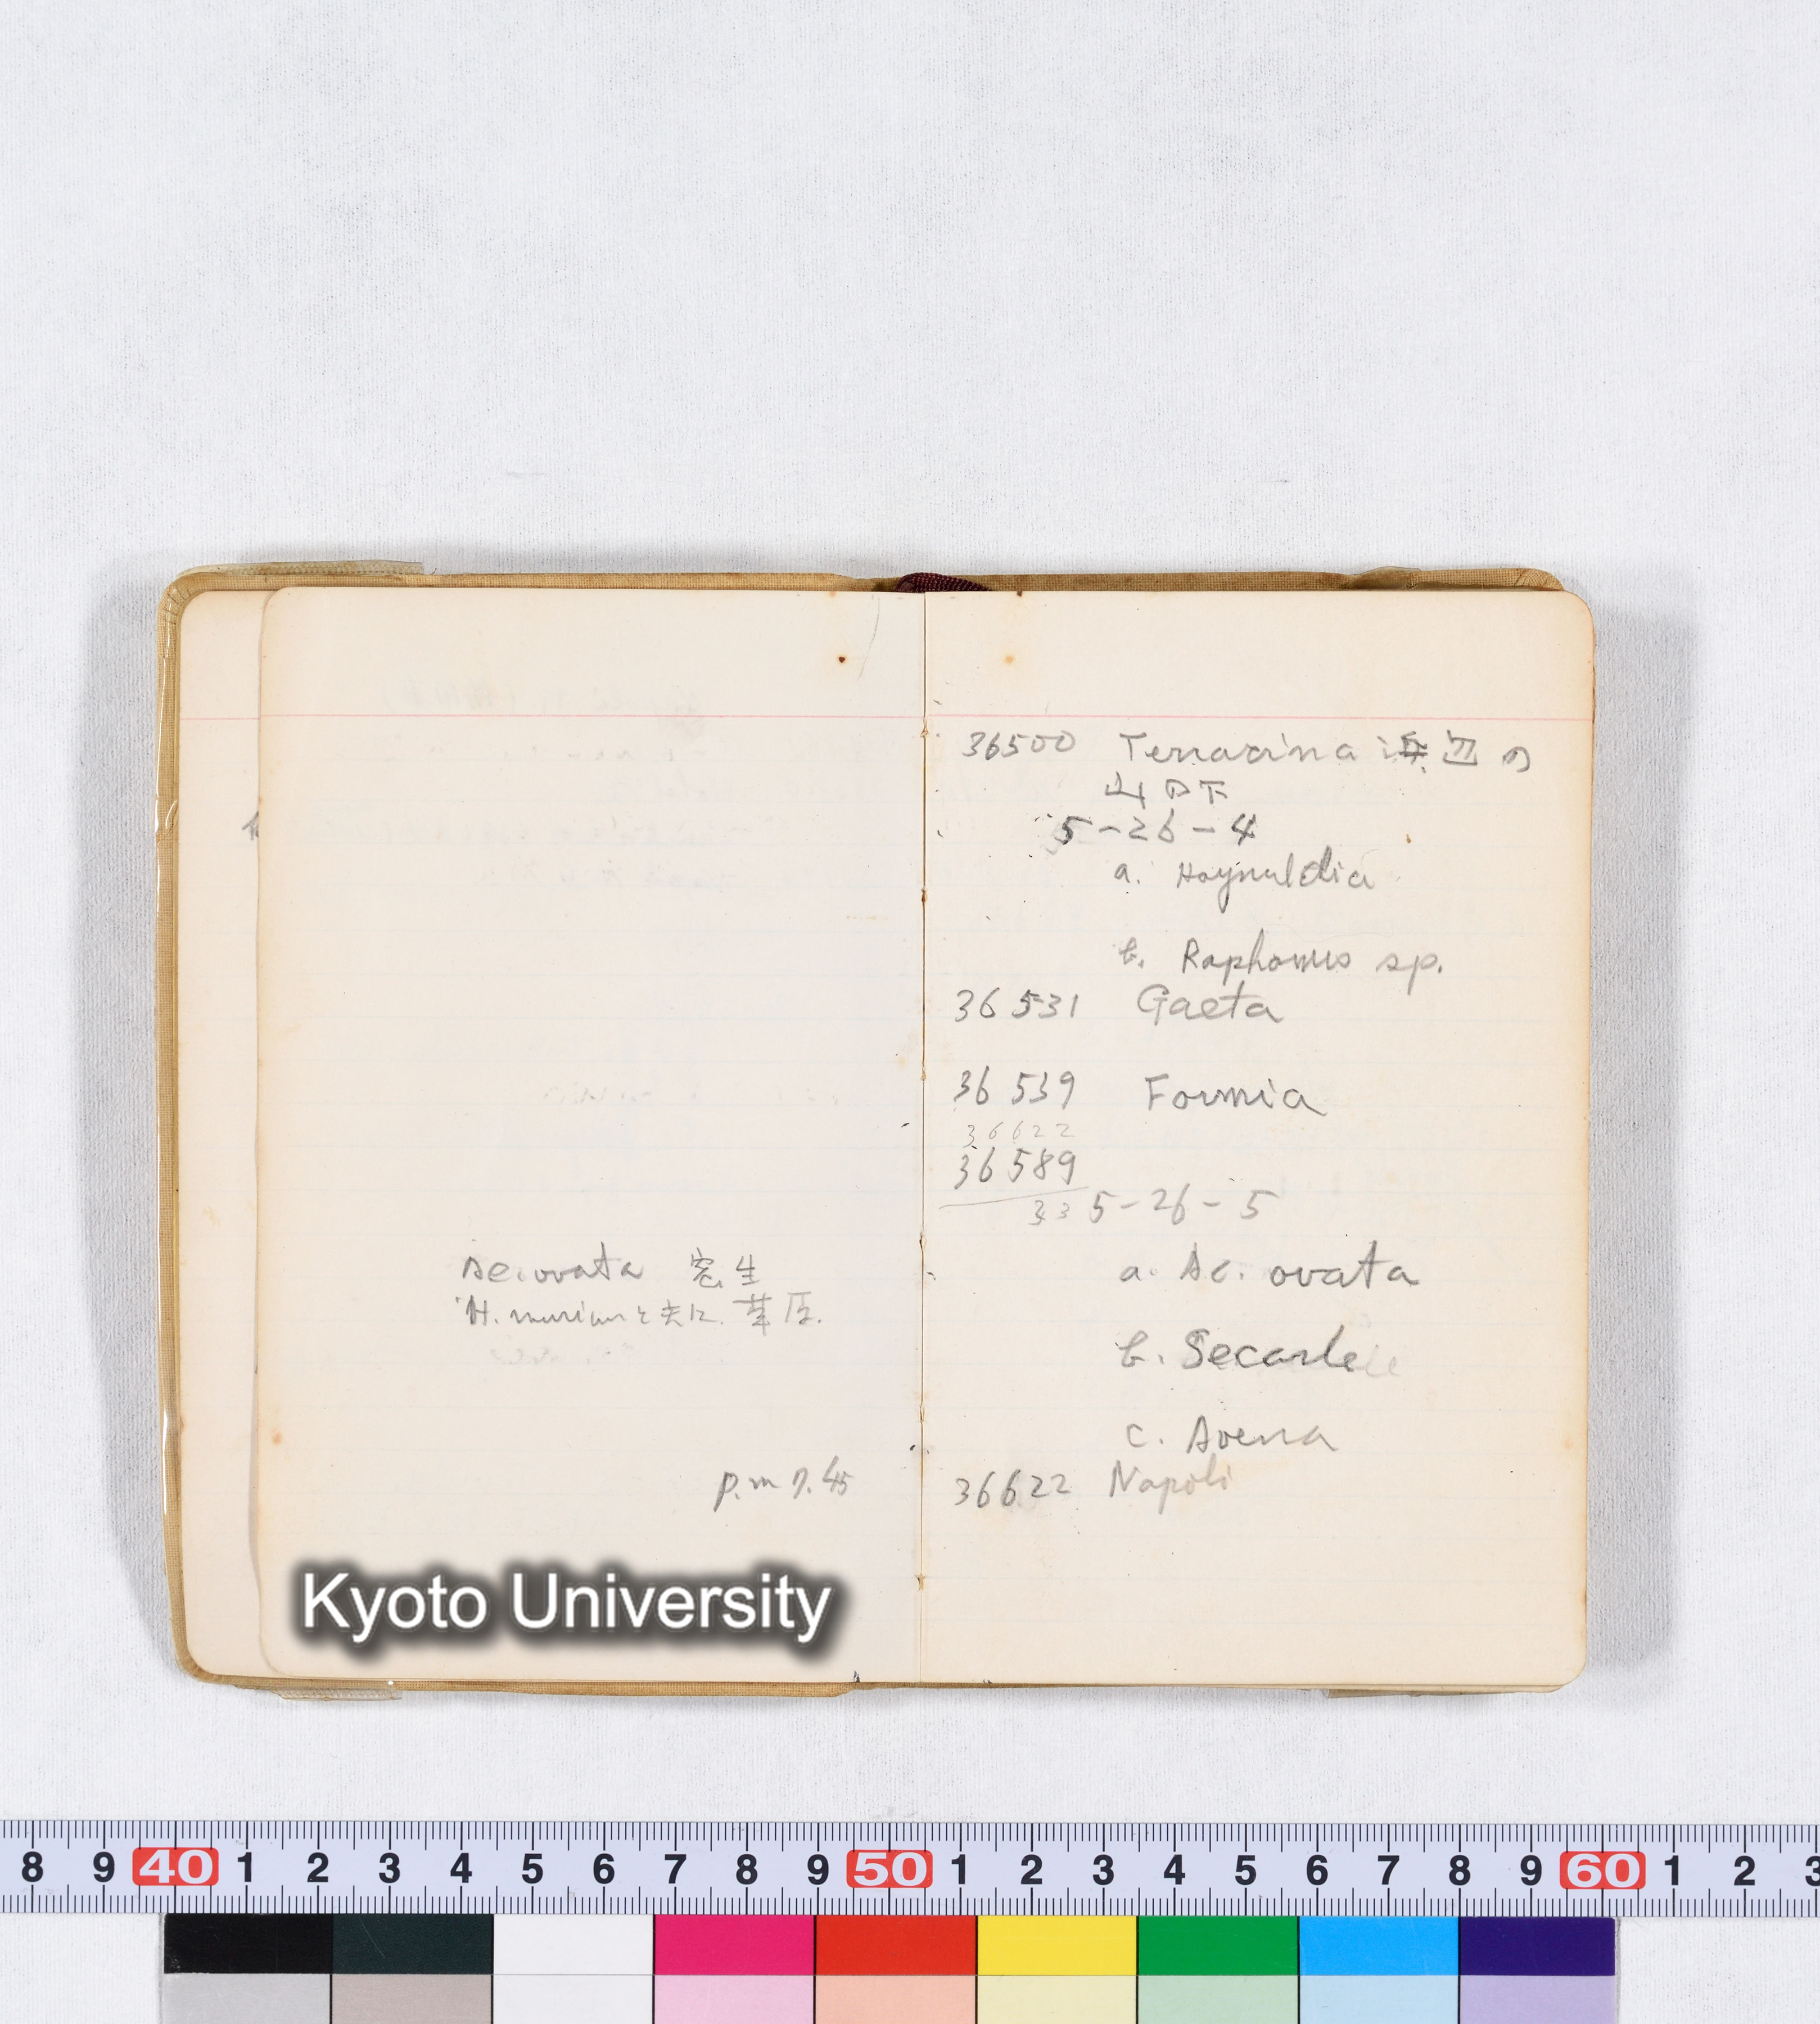 Ae. ovata 密生
H. murinum と共に 草原.
p.m 7.45
Kyoto University
36500 Terracina 海辺の
山の下
5-26-4
a. Haynaldia
b. Raphanus sp.
36531 Gaeta
36539 Formia
36622
36589
33 5-26-5
a. Ae. ovata
b. Secale
c. Avena
36622 Napoli
8 9 40 1 2 3 4 5 6 7 8 9 50 1 2 3 4 5 6 7 8 9 60 1 2 3